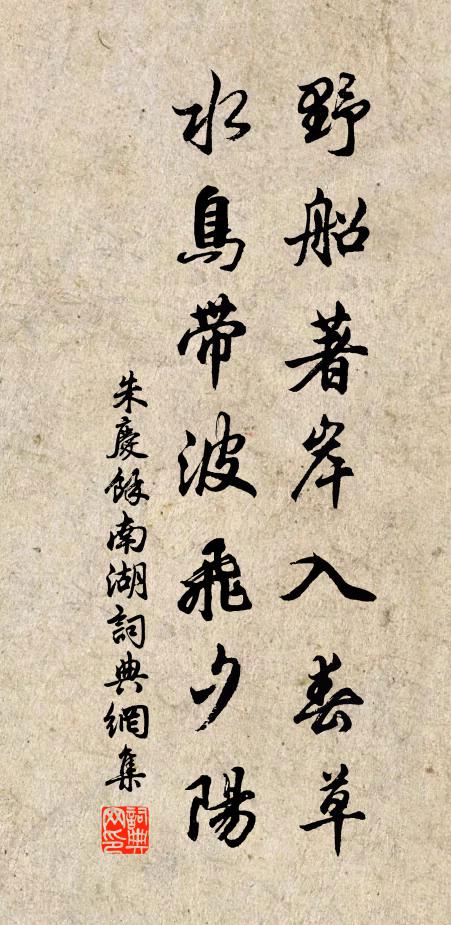 野船著岸入春草
水鳥帶波飛夕陽
朱慶餘南湖詞典網集
詞典网印